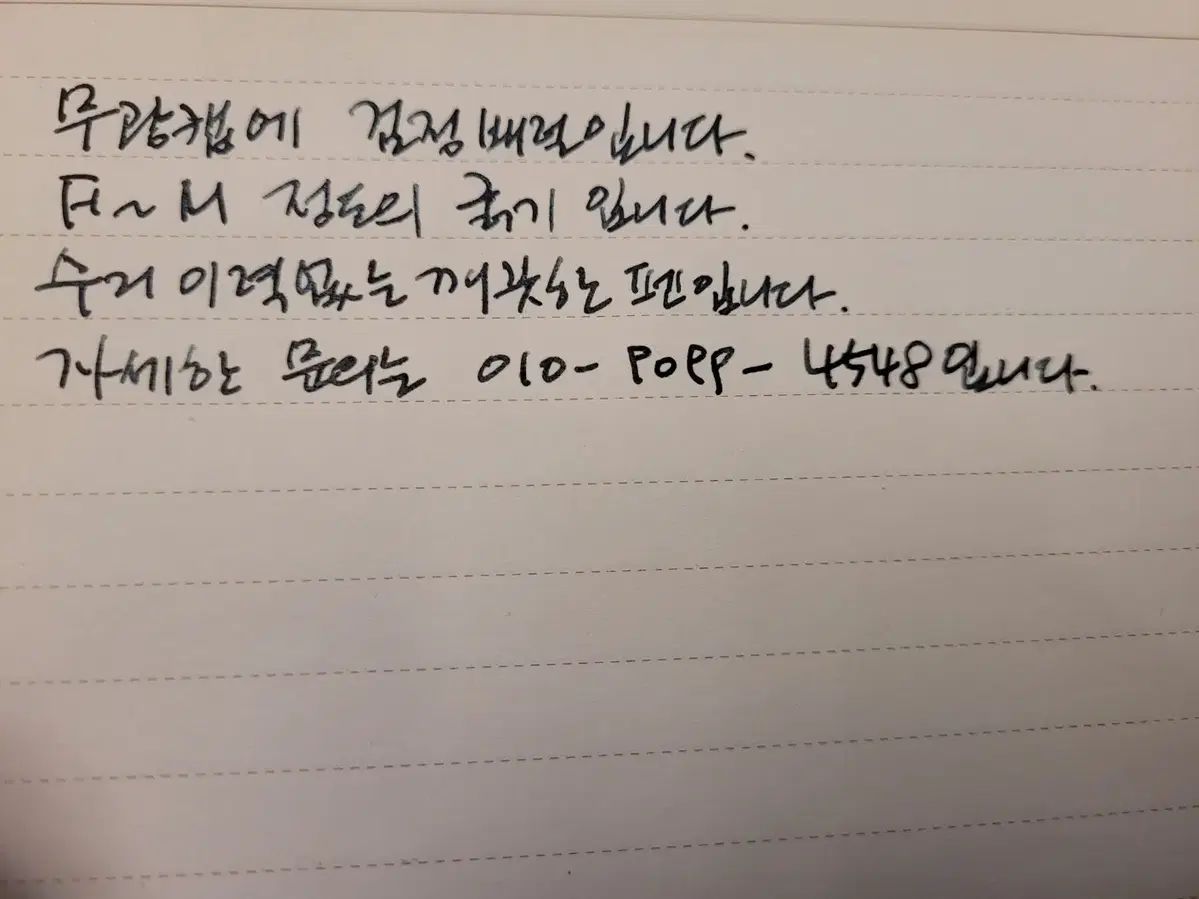 무광캡에 검정배럴입니다.
F ~ M 정도의 굵기 입니다.
수리 이력없는 깨끗한 펜입니다.
자세한 문의는 010- 9099- 4548입니다.